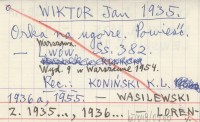 WIKTOR Jan 1935.
Orka na ugorze. Powieść.
Warszawa
— Lwów. SS. 382.
Wyd. 9 w Warszawie 1954.
Rec.: KONIŃSKI K.L.
1936a, 1955. — WASILEWSKI
Z. 1935..., 1936... LOREN-